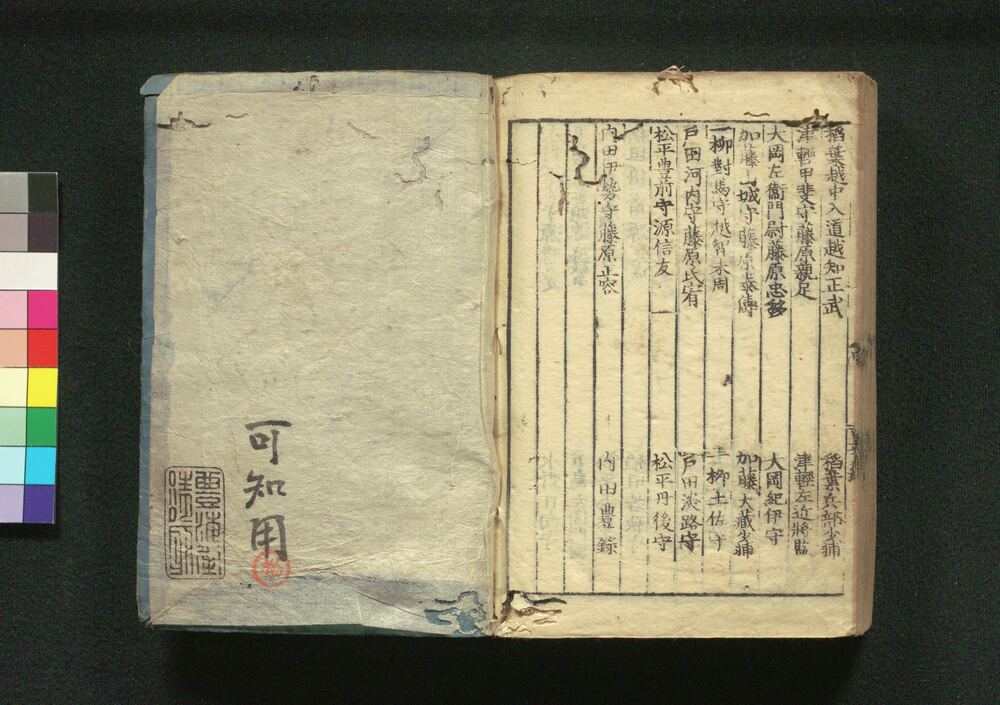 稲葉越中入道越知正武
稲葉兵部少輔
津輕甲斐守藤原親足
津輕左近將監
大岡左衞門尉藤原忠移
大岡紀伊守
加藤 城守藤原泰
加藤大藏少輔
一柳對馬守越智末周
一柳土佐守
戸田河内守藤原氏宥
戸田淡路守
松平豊前守源信友
松平丹後守
内田伊勢守藤原正容
内田豊錄
可知用